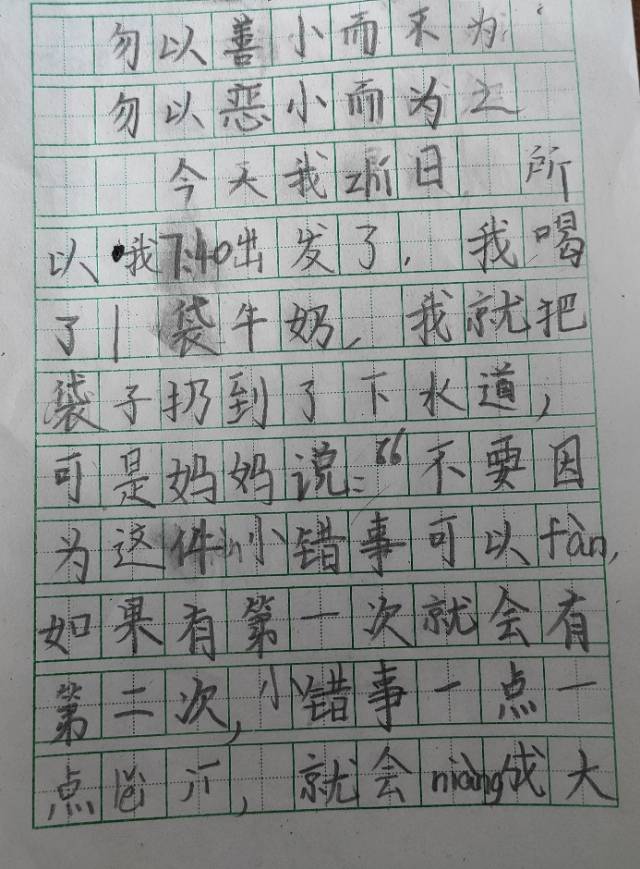 勿以善小而不为
勿以恶小而为之
今天我zhí日 所
以我7:40出发了，我喝
了1袋牛奶，我就把
袋子扔到了下水道，
可是妈妈说：“不要因
为这件小错事可以fàn，
如果有第一次就会有
第二次，小错事一点一
点，就会niàng成大